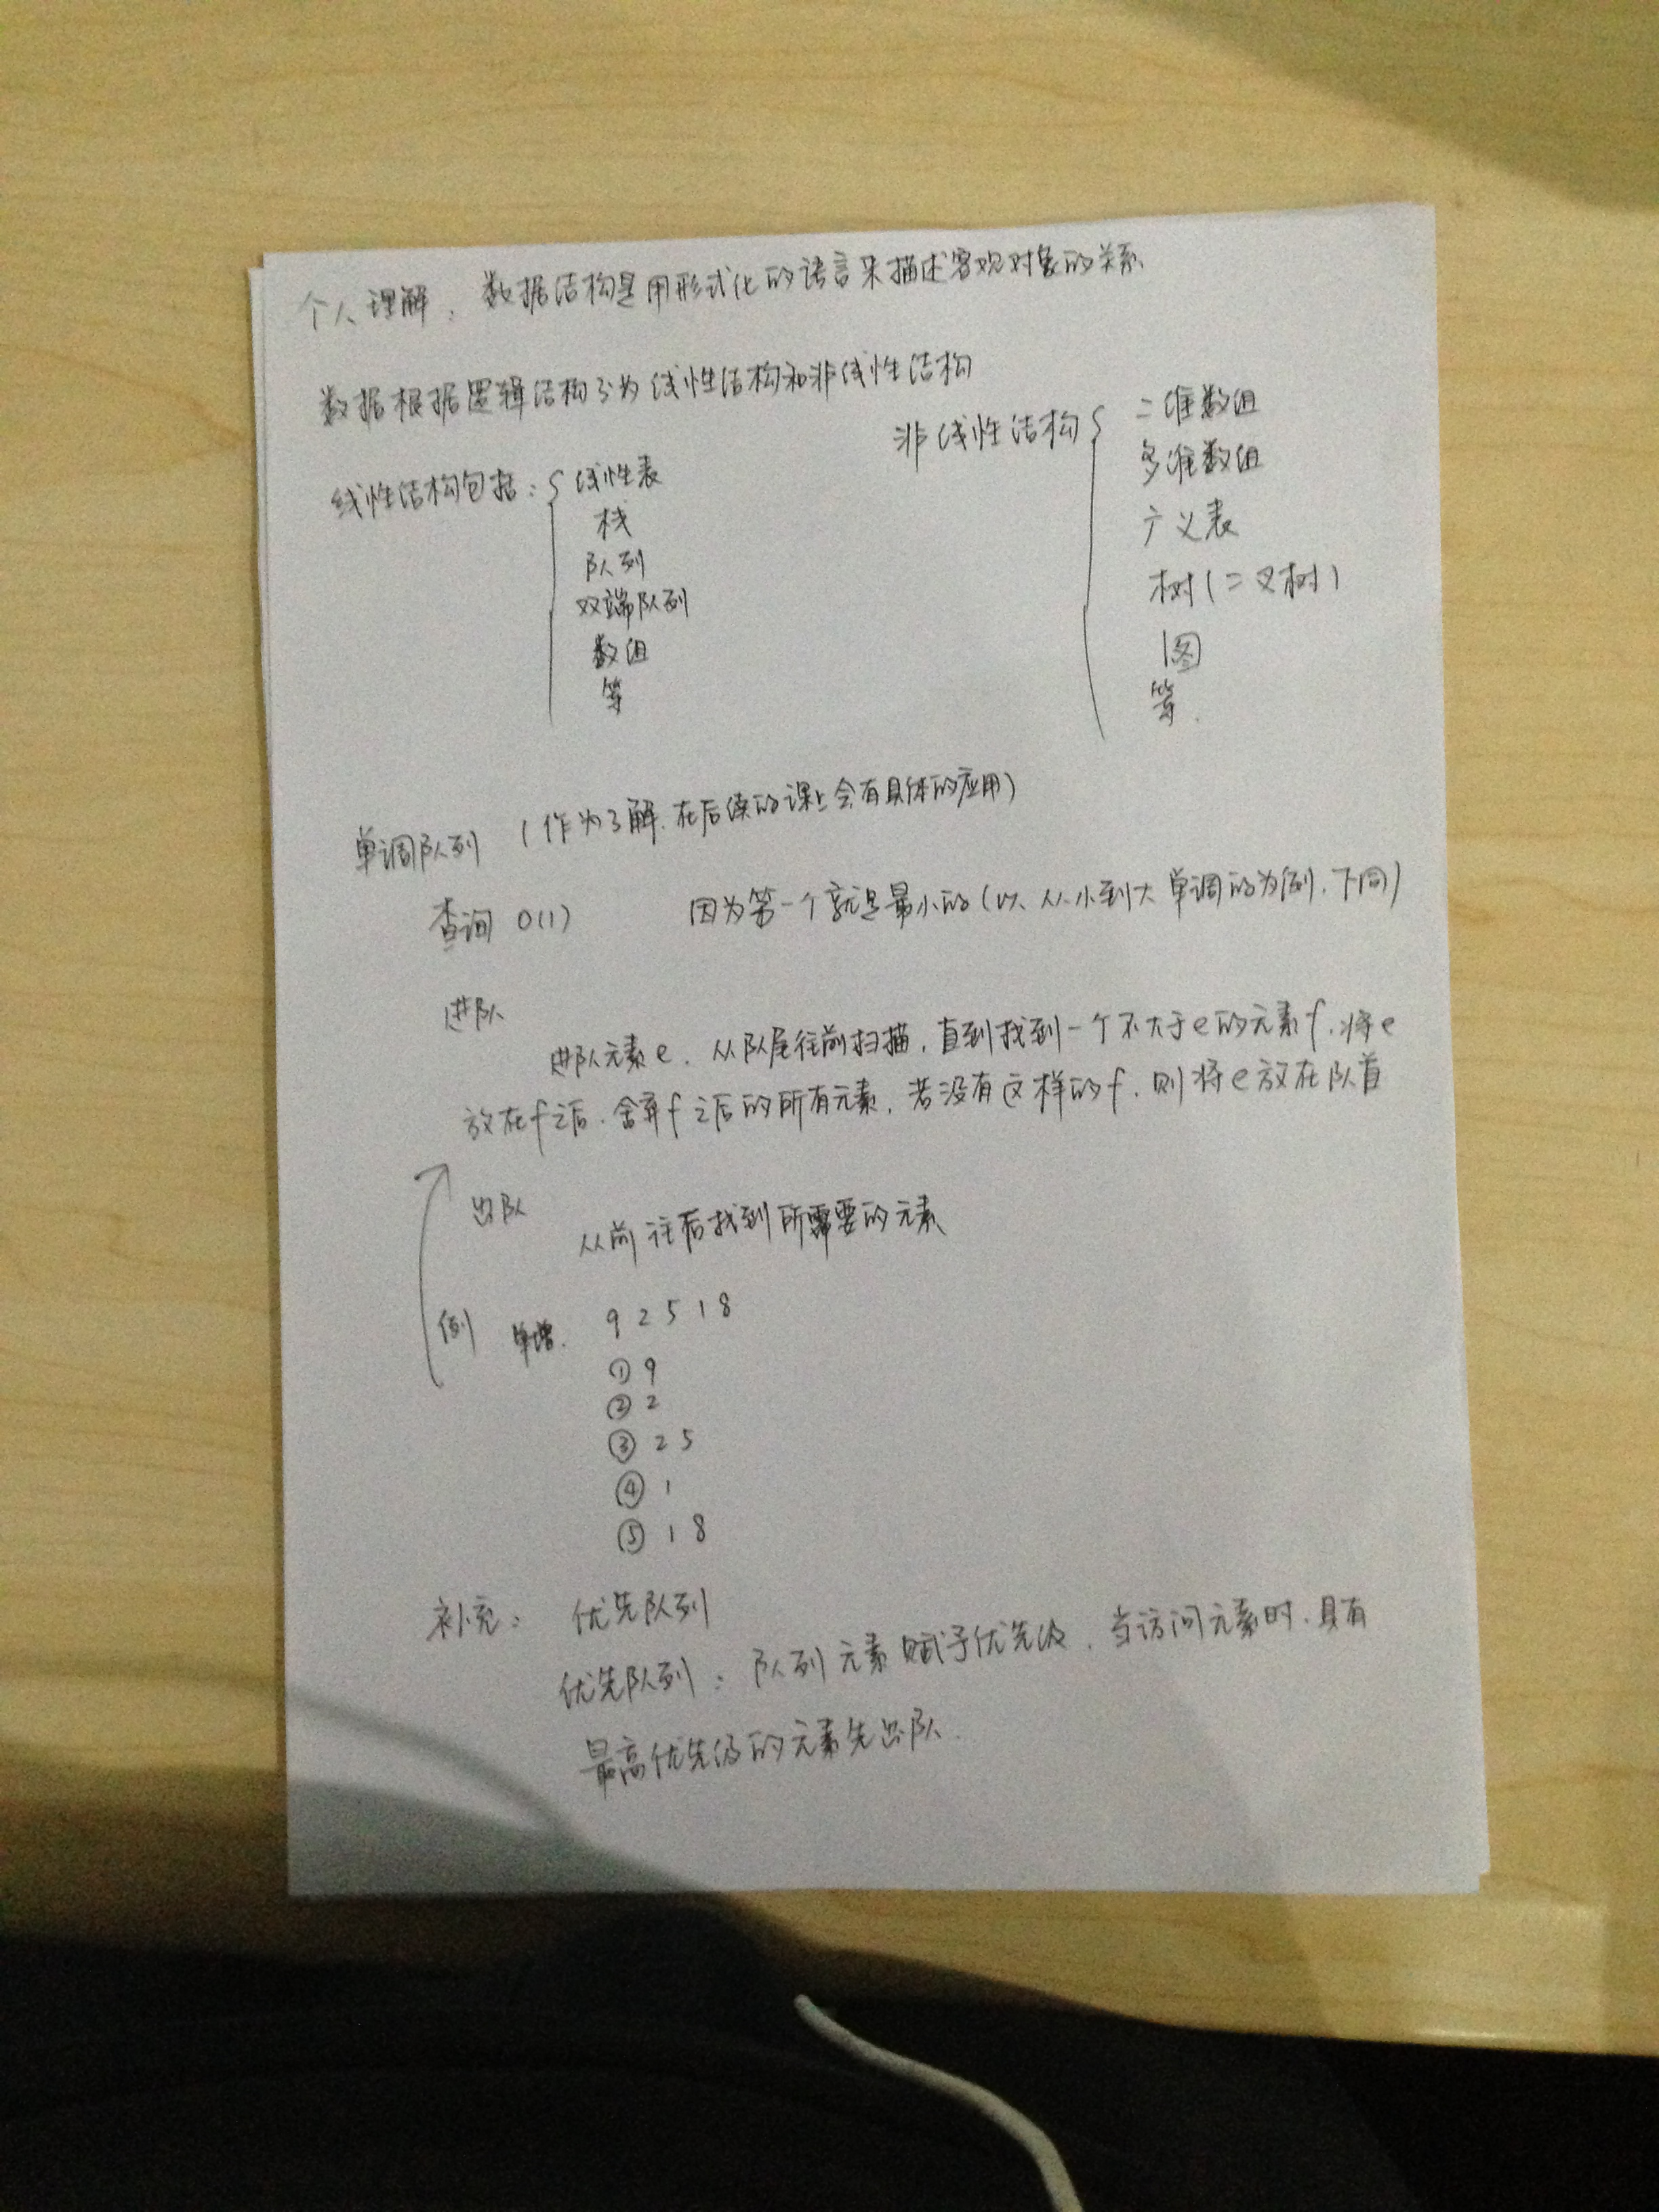 个人理解：数据结构是用形式化的语言来描述客观对象的关系
数据根据逻辑结构分为线性结构和非线性结构
线性结构包括：{ 线性表
栈
队列
双端队列
数组
等
非线性结构{ 二维数组
多维数组
广义表
树(二叉树)
图
等.
单调队列 (作为了解.在后续的课上会有具体的应用)
查询 O(1) 因为第一个就是最小的(以从小到大单调的为例.下同)
进队
进队元素e. 从队尾往前扫描,直到找到一个不大于e的元素f.将e
放在f之后.舍弃f之后的所有元素.若没有这样的f.则将e放在队首
出队
从前往后找到所需要的元素
例 单增. 9 2 5 1 8
① 9
② 2
③ 2 5
④ 1
⑤ 1 8
补充： 优先队列
优先队列：队列元素赋予优先级.当访问元素时.具有
最高优先级的元素先出队.